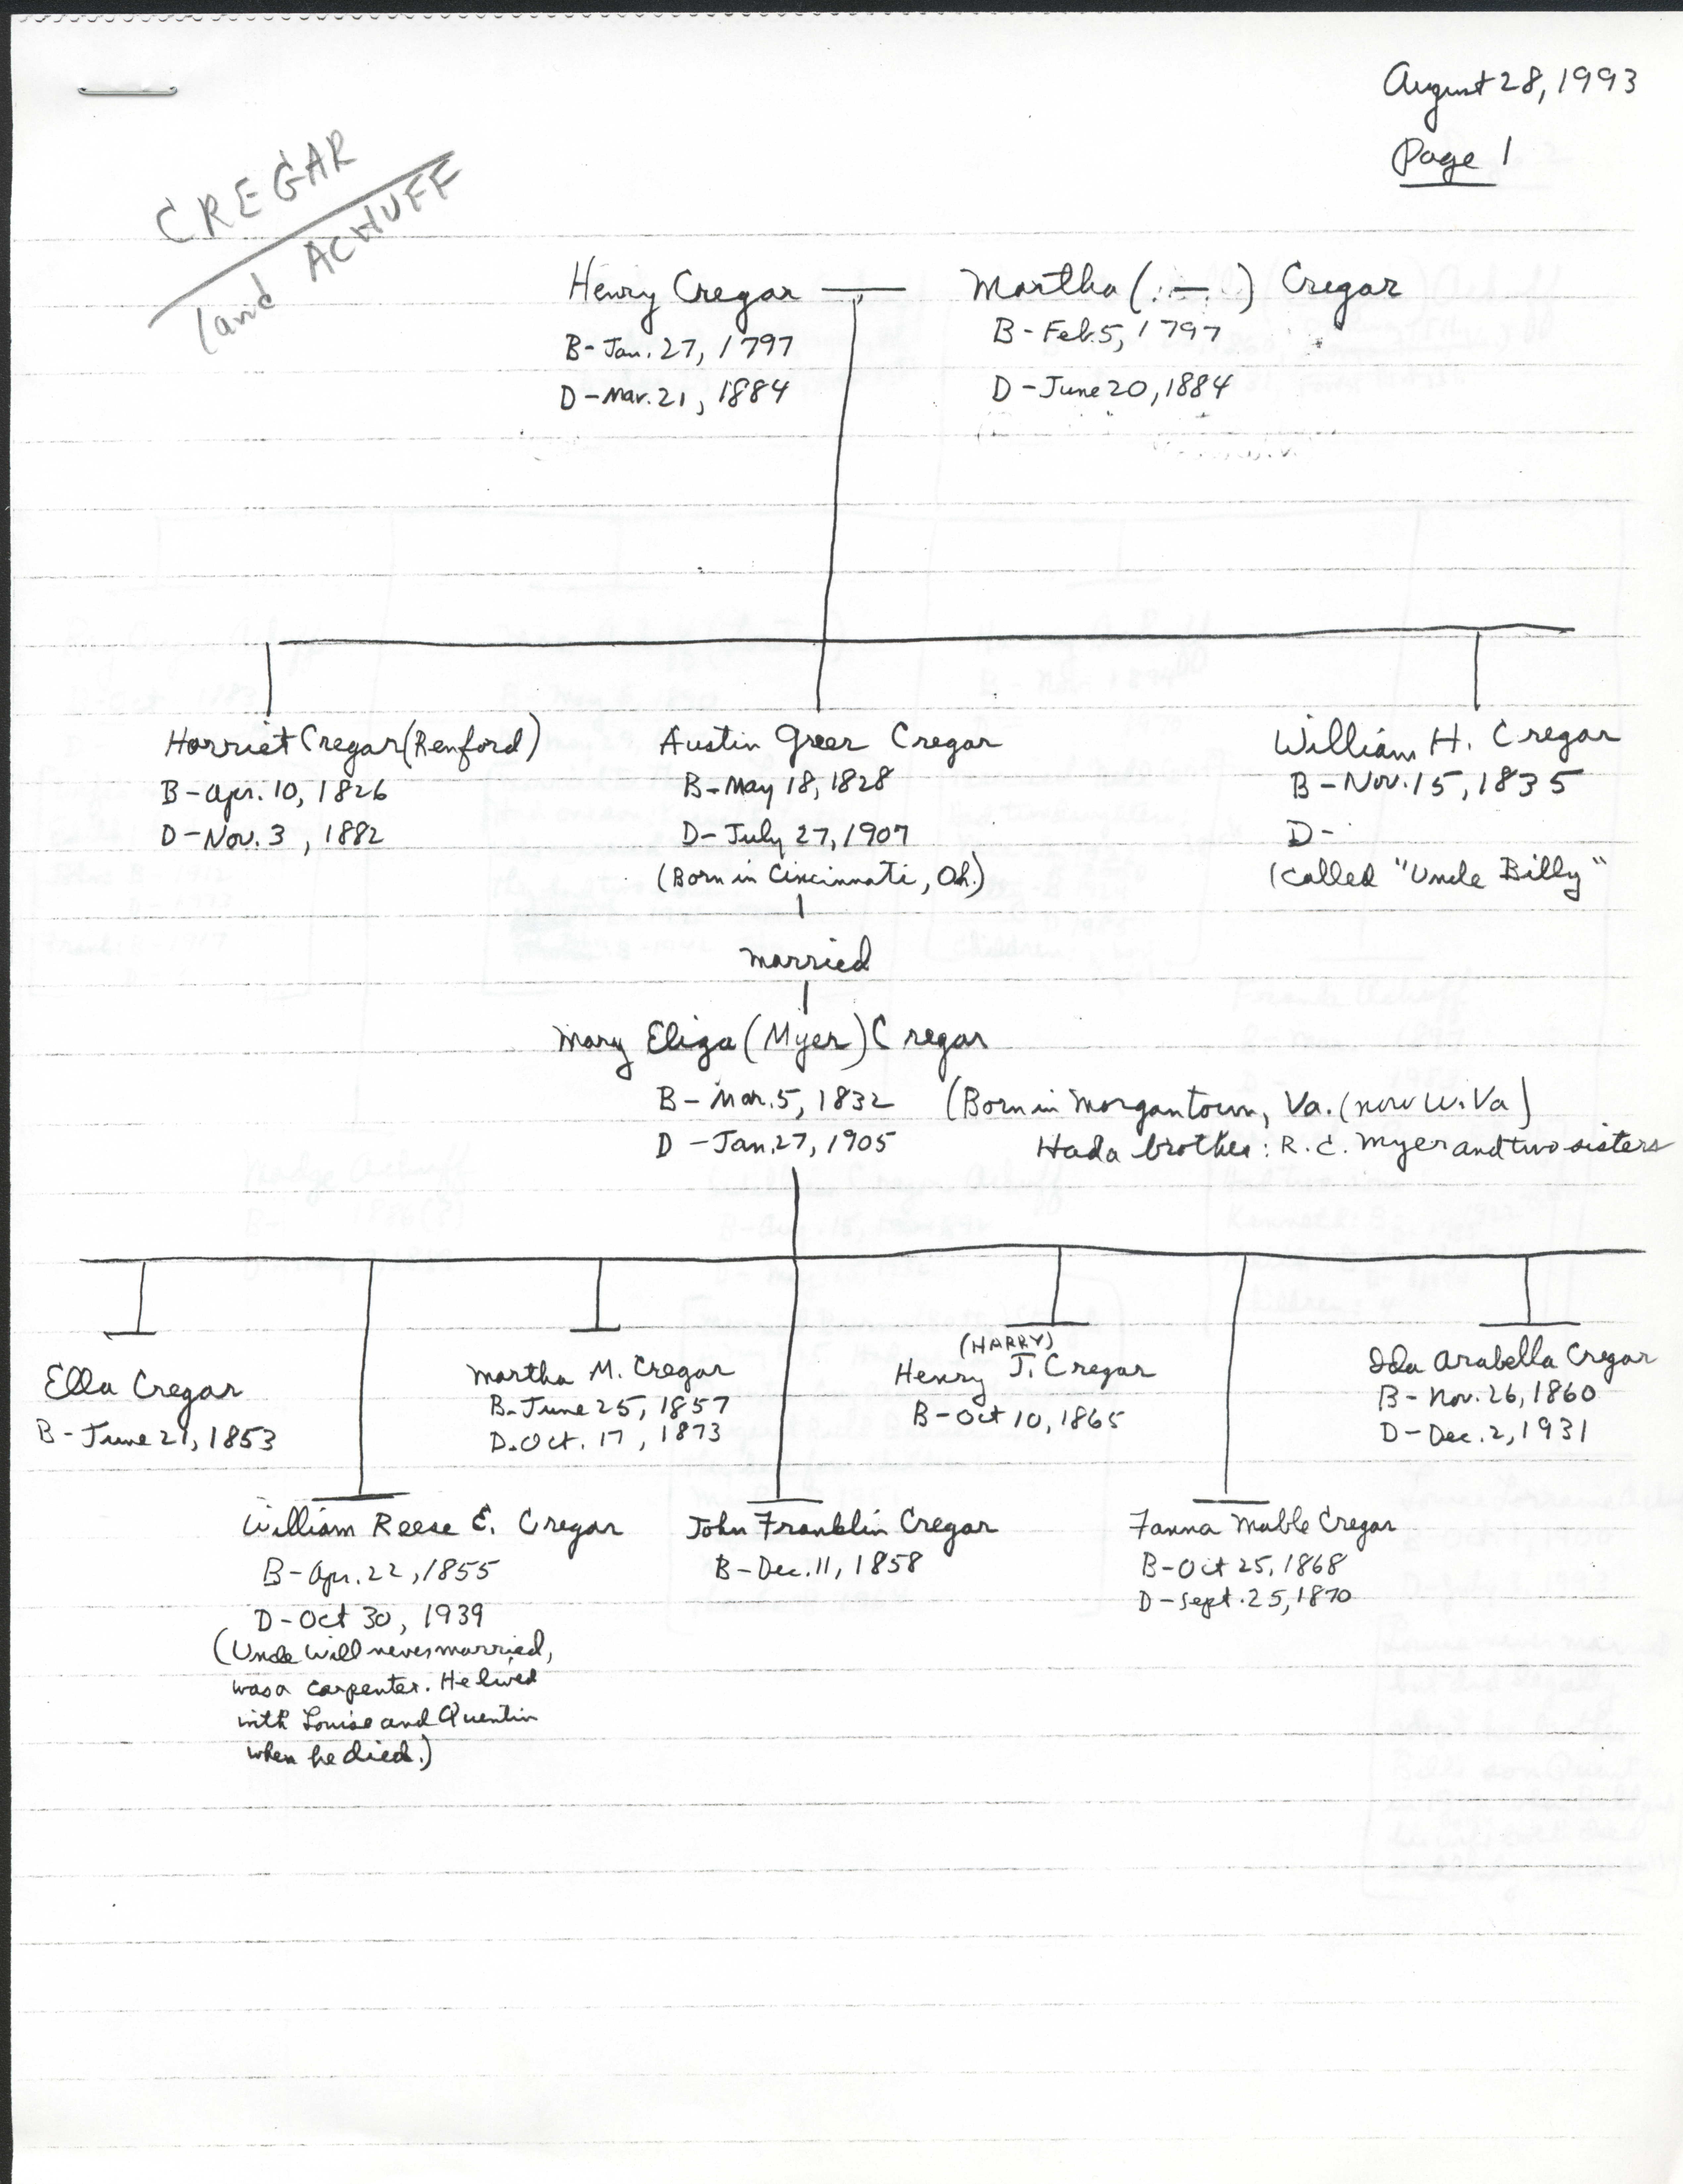 August 28, 1993
Page 1
CREGAR
(and ACHUFF
Henry Cregar
B-Jan. 27, 1797
D-Mar. 21, 1884
Martha ( — ) Cregar
B-Feb. 5, 1797
D-June 20, 1884
Harriet Cregar (Renford)
B-Apr. 10, 1826
D-Nov. 3, 1882
Austin Greer Cregar
B-May 18, 1828
D-July 27, 1907
(Born in Cincinnati, Oh.)
William H. Cregar
B-Nov. 15, 1835
D-
(called "Uncle Billy"
married
Mary Eliza (Myer) Cregar
B-Mar. 5, 1832 (Born in Morgantown, Va. (now W. Va)
D-Jan. 27, 1905 Had a brother: R. E. Myer and two sisters
Ella Cregar
B-June 21, 1853
Martha M. Cregar
B-June 25, 1857
D-Oct. 17, 1873
(HARRY)
Henry J. Cregar
B-Oct 10, 1865
Ida Arabella Cregar
B-Nov. 26, 1860
D-Dec. 2, 1931
William Reese E. Cregar
B-Apr. 22, 1855
D-Oct 30, 1939
(Uncle Will never married,
was a carpenter. He lived
with Louise and Quentin
when he died.)
John Franklin Cregar
B-Dec. 11, 1858
Fanna Mable Cregar
B-Oct 25, 1868
D-Sept. 25, 1870